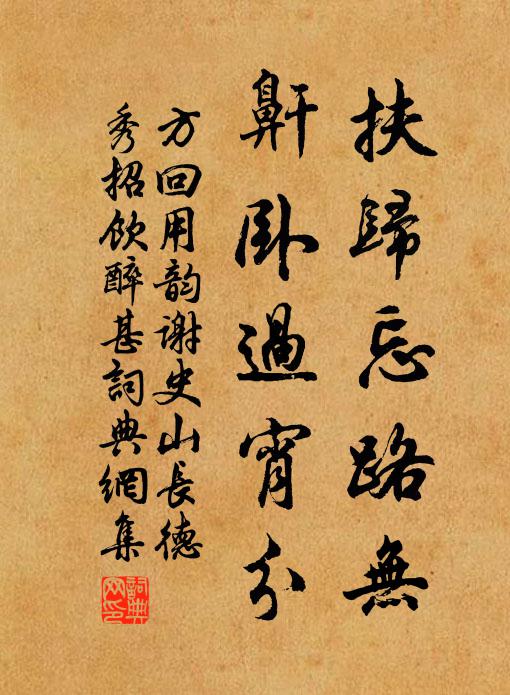 扶歸忘路無
鼾卧過宵分
方回用韵謝史山長德
秀招飲醉甚詞典網集
詞典網印